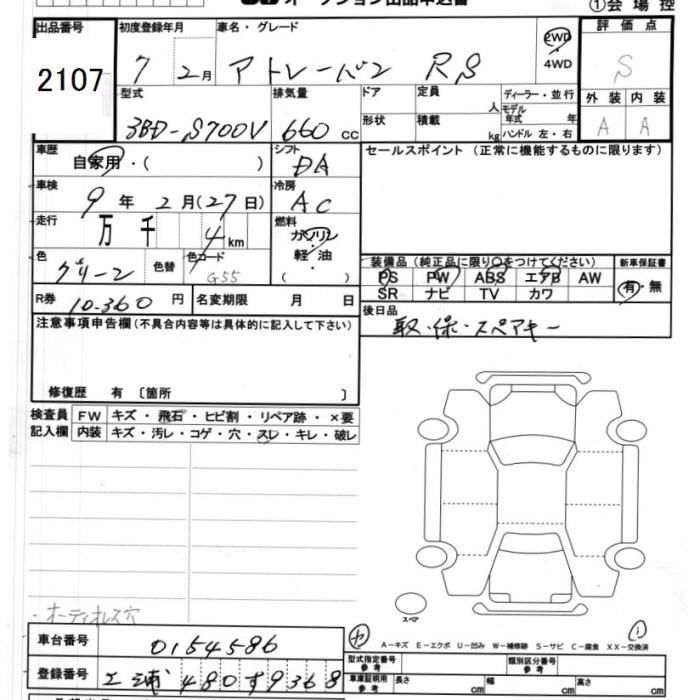 オークション出品申込書 ①会場控
出品番号 初度登録年月 車名・グレード 2WD 評価点
2107 7 2月 アトレーバン RS 4WD S
型式 排気量 ドア 定員 人 ディーラー・並行 外装 内装
3BD-S700V 660cc 形状 積載 kg モデル年式 年 ハンドル 左・右 A A
車歴 シフト セールスポイント (正常に機能するものに限ります)
自家用・( ) DA
車検 冷房
9年 2月(27日) AC
走行 燃料
万 千 4km ガソリン
軽油
色 色替 色コード 装備品 (純正品に限り○をつけてください) 新車保証書
グリーン G55 ( ) PS PW ABS エアB AW 有・無
R券 10-360円 名変期限 月 日 SR ナビ TV カワ
注意事項申告欄(不具合内容等は具体的に記入して下さい) 後日品
取・保・スペアキー
修復歴 有 〔箇所 〕
検査員 FW キズ・飛石・ヒビ割・リペア跡・×要
記入欄 内装 キズ・汚レ・コゲ・穴・スレ・キレ・破レ
・オーディオレス穴
スペア
A-キズ E-エクボ U-凹み W-補修跡 S-サビ C-腐食 XX-交換済
車台番号 0154586 型式指定番号 参考 類別区分番号 参考
登録番号 土浦 480す9368 車庫証明用 参考 長さ cm 幅 cm 高さ cm